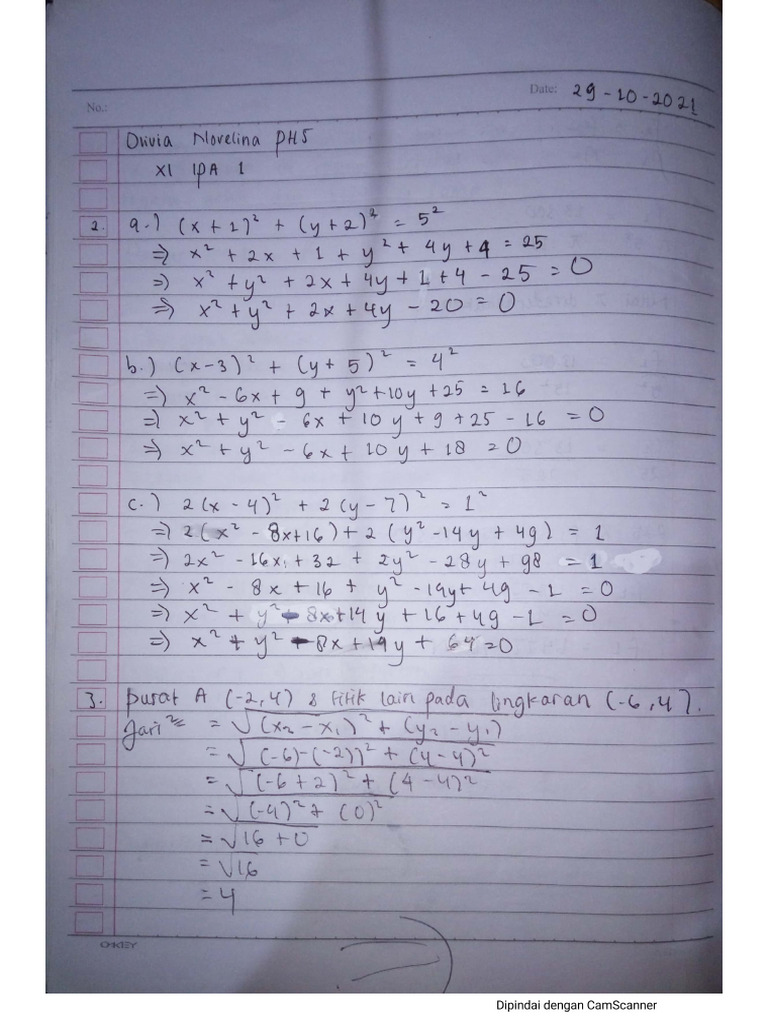 No.:
Date: 29-10-2021
Olivia Novelina PH5
XI IPA 1
2. a.) (x + 1)² + (y + 2)² = 5²
=> x² + 2x + 1 + y² + 4y + 4 = 25
=> x² + y² + 2x + 4y + 1 + 4 - 25 = 0
=> x² + y² + 2x + 4y - 20 = 0
b.) (x - 3)² + (y + 5)² = 4²
=> x² - 6x + 9 + y² + 10y + 25 = 16
=> x² + y² - 6x + 10y + 9 + 25 - 16 = 0
=> x² + y² - 6x + 10y + 18 = 0
c.) 2(x - 4)² + 2(y - 7)² = 1²
=> 2(x² - 8x + 16) + 2(y² - 14y + 49) = 1
=> 2x² - 16x + 32 + 2y² - 28y + 98 = 1
=> x² - 8x + 16 + y² - 14y + 49 - 1 = 0
=> x² + y² - 8x + 14y + 16 + 49 - 1 = 0
=> x² + y² - 8x + 14y + 64 = 0
3. pusat A (-2,4) & titik lain pada lingkaran (-6,4).
Jari² = = √(x₂ - x₁)² + (y₂ - y₁)
= √(-6) - (-2))² + (4 - 4)²
= √(-6 + 2)² + (4 - 4)²
= √(-4)² + (0)²
= √16 + 0
= √16
= 4
OKEY
Dipindai dengan CamScanner